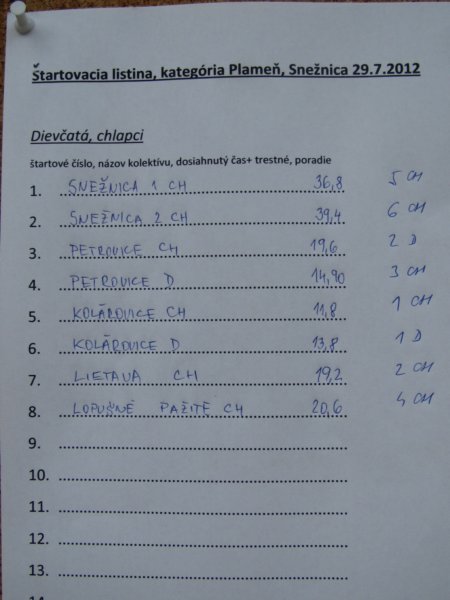 Štartovacia listina, kategória Plameň, Snežnica 29.7.2012
Dievčatá, chlapci
štartové číslo, názov kolektívu, dosiahnutý čas+ trestné, poradie
1. SNEŽNICA 1 CH 36,8 5 CH
2. SNEŽNICA 2 CH 39,4 6 CH
3. PETROVICE CH 19,6 2 D
4. PETROVICE D 14,90 3 CH
5. KOLÁROVICE CH 11,8 1 CH
6. KOLÁROVICE D 13,8 1 D
7. LIETAVA CH 19,2 2 CH
8. LOPUŠNÉ PAŽITE CH 20,6 4 CH
9.
10.
11.
12.
13.